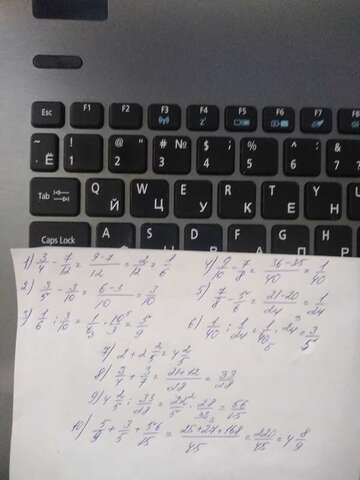 Esc F1 F2 F3 F4 F5 F6 F7 F8
~ Ё ! 1 @ " 2 # № 3 $ ; 4 % 5 ^ : 6 & ? 7
Tab Q Й W Ц E У R К T Е Y Н
Caps Lock
1) 3/4 - 7/12 = 9-7/12 = 2/12 = 1/6 4) 9/10 - 7/8 = 36-35/40 = 1/40
2) 3/5 - 3/10 = 6-3/10 = 3/10 5) 7/8 - 5/6 = 21-20/24 = 1/24
3) 1/6 : 3/10 = 1/6 · 10/3 = 5/9 6) 1/40 : 1/24 = 1/40 · 24 = 3/5
7) 2+2 2/5 = 4 2/5
8) 3/4 + 3/7 = 21+12/28 = 33/28
9) 4 2/5 : 33/28 = 22/5 · 28/33 = 56/15
10) 5/9 + 3/5 + 56/15 = 25+27+168/45 = 220/45 = 4 8/9